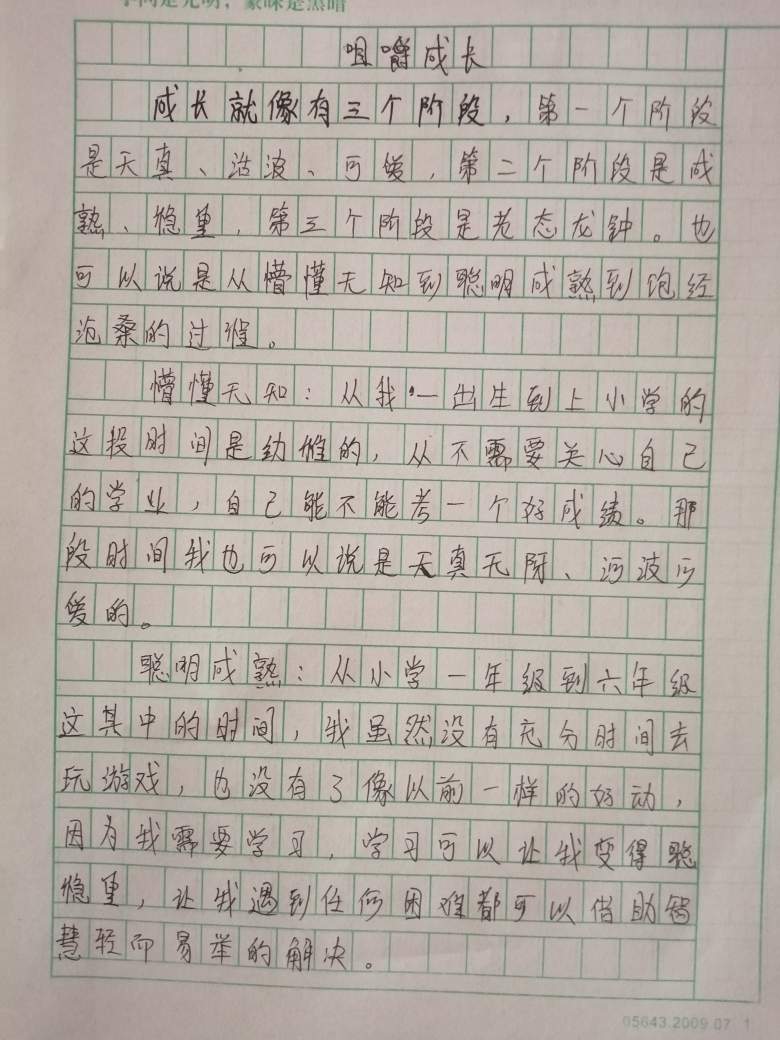 学问是光明，蒙昧是黑暗
咀嚼成长
成长就像有三个阶段，第一个阶段
是天真、活波、可爱，第二个阶段是成
熟、稳重，第三个阶段是老态龙钟。也
可以说是从懵懂无知到聪明成熟到饱经
沧桑的过程。
懵懂无知：从我一出生到上小学的
这段时间是幼稚的，从不需要关心自己
的学业，自己能不能考一个好成绩。那
段时间我也可以说是天真无邪、活波可
爱的。
聪明成熟：从小学一年级到六年级
这其中的时间，我虽然没有充分时间去
玩游戏，也没有了像以前一样的好动，
因为我需要学习，学习可以让我变得聪
稳重，让我遇到任何困难都可以借助智
慧轻而易举的解决。
05643.2009.07 1